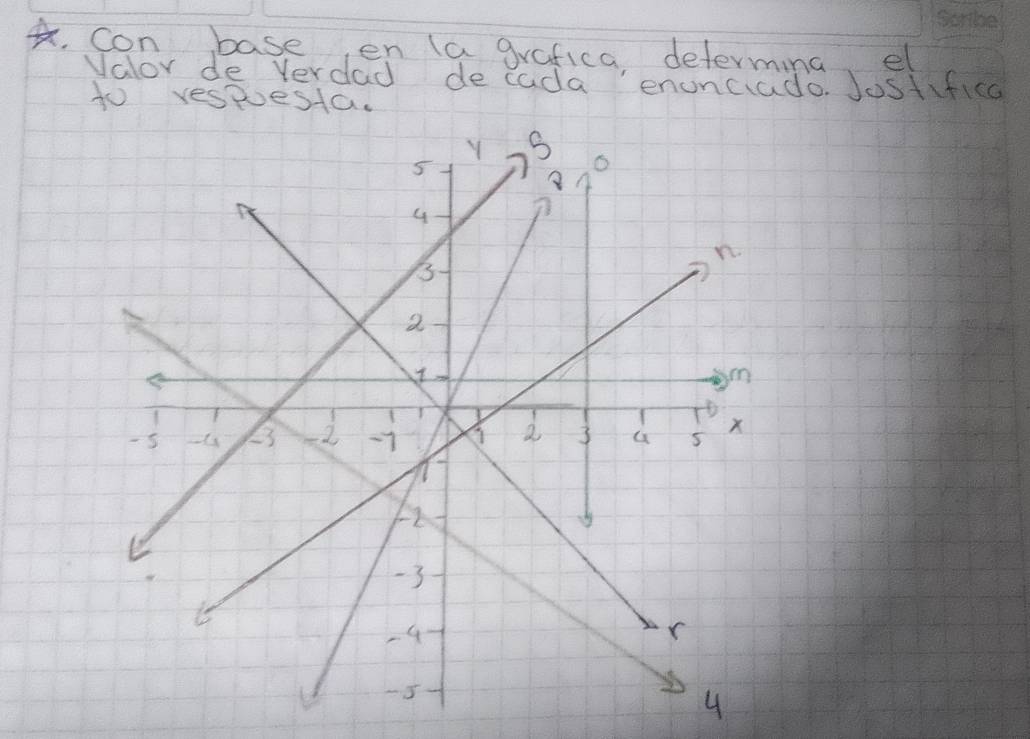 Scribe
☆. Con base en la grafica, determina el
Valor de Verdad de cada enunciado. Jostifica
to respuesta.
y S
5 o
4
n
3
2
1 m
-5 -4 -3 -2 -1 1 2 3 4 5 x
-2
-3
-4 r
-5
4